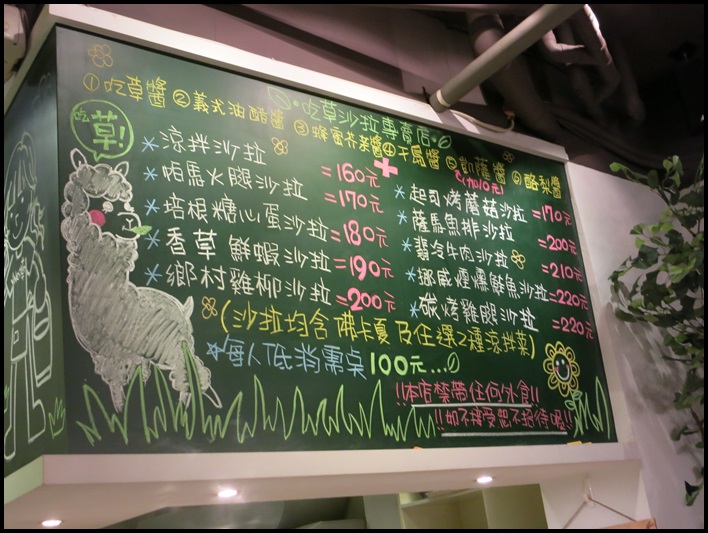 吃草沙拉專賣店
①吃草醬 ②義式油醋醬 ③蜂蜜芥茉醬 ④千島醬 ⑤凱薩醬 ⑥酪梨醬
(加10元)
吃草!
*涼拌沙拉 =160元
*帕馬火腿沙拉 =170元
*培根糖心蛋沙拉 =180元
*香草鮮蝦沙拉 =190元
*鄉村雞柳沙拉 =200元
*起司烤蘑菇沙拉 =170元
*薩馬魚排沙拉 =200元
*翡冷牛肉沙拉 =210元
*挪威煙燻鮭魚沙拉 =220元
*碳烤雞腿沙拉 =220元
(沙拉均含佛卡夏及任選2種涼拌菜)
每人低消需点100元...
!!本店禁帶任何外食!!
!!如不接受恕不招待喔!!